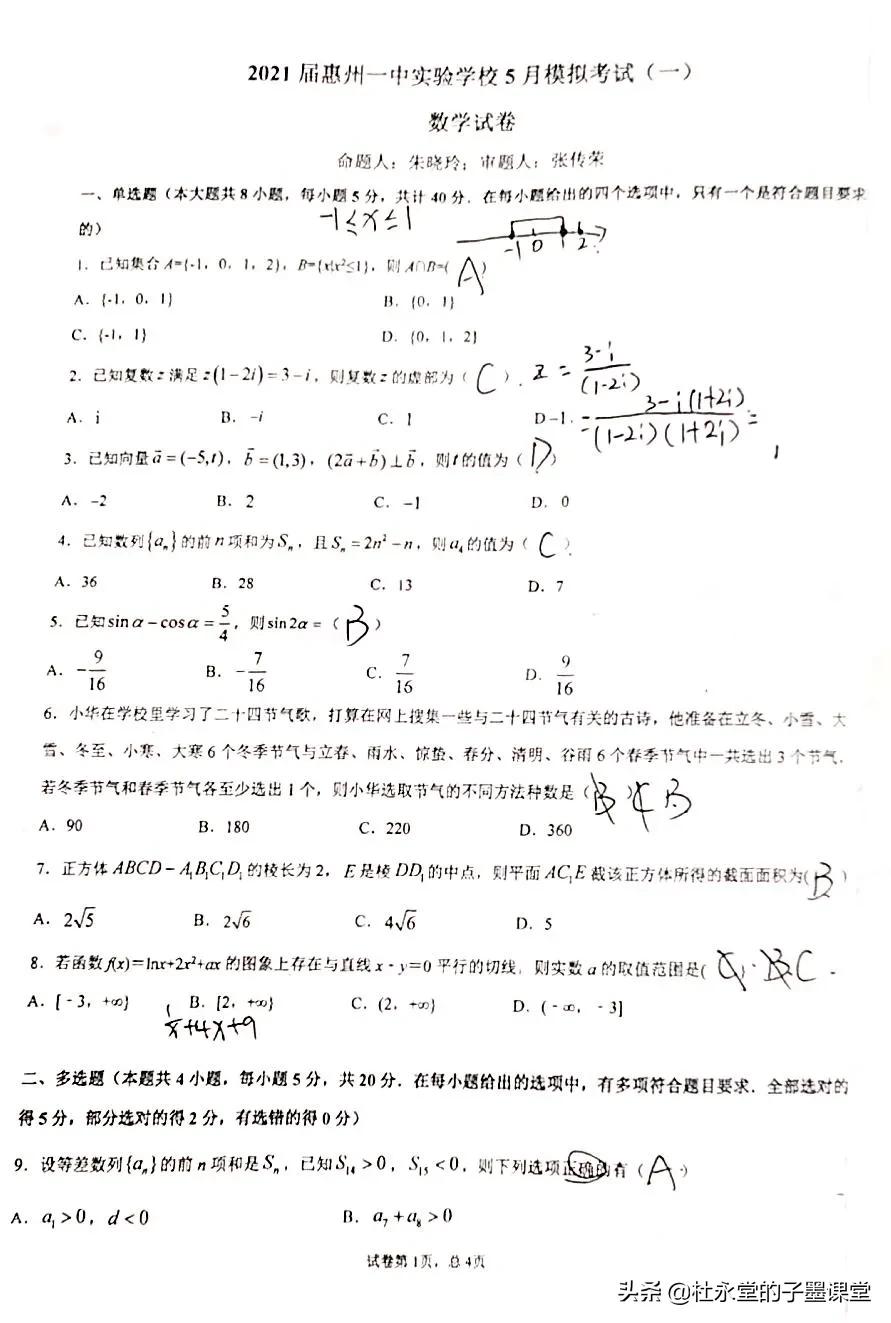 2021届惠州一中实验学校5月模拟考试（一）
数学试卷
命题人：朱晓玲；审题人：张传荣
一、单选题（本大题共8小题，每小题5分，共计40分．在每小题给出的四个选项中，只有一个是符合题目要求
的）
-1≤x≤1
-1 0 1 2
1．已知集合A={-1，0，1，2}，B={x|x²≤1}，则A∩B=( A )
A．{-1，0，1} B．{0，1}
C．{-1，1} D．{0，1，2}
2．已知复数z满足z(1-2i)=3-i，则复数z的虚部为（ C ）．
z = 3-i/(1-2i)
A．i B．-i C．1 D-1．
= 3-i(1+2i)/(1-2i)(1+2i) =
3．已知向量a⃗=(-5,t)，b⃗=(1,3)，(2a⃗+b⃗)⊥b⃗，则t的值为（ D ）
A．-2 B．2 C．-1 D．0
4．已知数列{aₙ}的前n项和为Sₙ，且Sₙ=2n²-n，则a₄的值为（ C ）
A．36 B．28 C．13 D．7
5．已知sinα-cosα=5/4，则sin2α=（ B ）
A．-9/16 B．-7/16 C．7/16 D．9/16
6．小华在学校里学习了二十四节气歌，打算在网上搜集一些与二十四节气有关的古诗，他准备在立冬、小雪、大
雪、冬至、小寒、大寒6个冬季节气与立春、雨水、惊蛰、春分、清明、谷雨6个春季节气中一共选出3个节气．
若冬季节气和春季节气各至少选出1个，则小华选取节气的不同方法种数是（ B ）C B
A．90 B．180 C．220 D．360
7．正方体ABCD-A₁B₁C₁D₁的棱长为2，E是棱DD₁的中点，则平面AC₁E截该正方体所得的截面面积为( B )
A．2√5 B．2√6 C．4√6 D．5
8．若函数f(x)=lnx+2x²+ax的图象上存在与直线x-y=0平行的切线，则实数a的取值范围是( ) B C
A．[-3，+∞) B．[2，+∞) C．(2，+∞) D．(-∞，-3]
1/x+4x+9
二、多选题（本题共4小题，每小题5分，共20分．在每小题给出的选项中，有多项符合题目要求．全部选对的
得5分，部分选对的得2分，有选错的得0分）
9．设等差数列{aₙ}的前n项和是Sₙ，已知S₁₄>0，S₁₅<0，则下列选项正确的有（ A ）
A．a₁>0，d<0 B．a₇+a₈>0
试卷第1页，总4页
头条 @杜永堂的子墨课堂